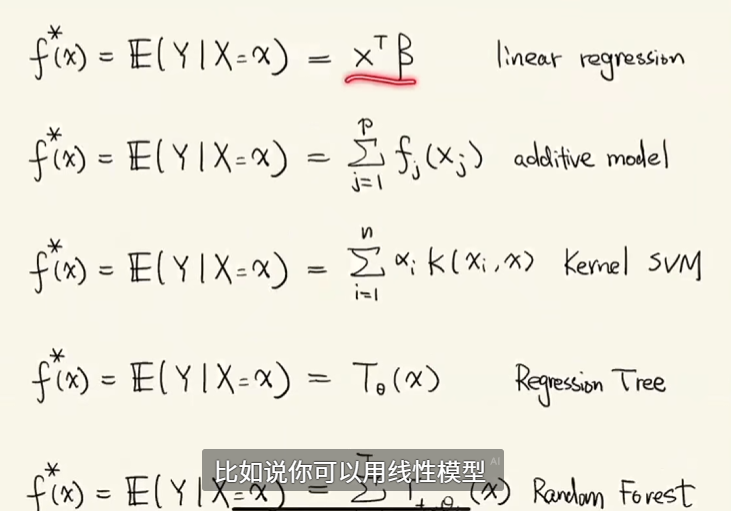 f*(x) = 𝔼(Y|X=x) = xᵀβ linear regression
f*(x) = 𝔼(Y|X=x) = Σ_{j=1}^{p} f_j(x_j) additive model
f*(x) = 𝔼(Y|X=x) = Σ_{i=1}^{n} α_i k(x_i, x) Kernel SVM
f*(x) = 𝔼(Y|X=x) = T_θ(x) Regression Tree
f*(x) = 𝔼(Y|X=x) = (x) Random Forest
比如说你可以用线性模型
AI